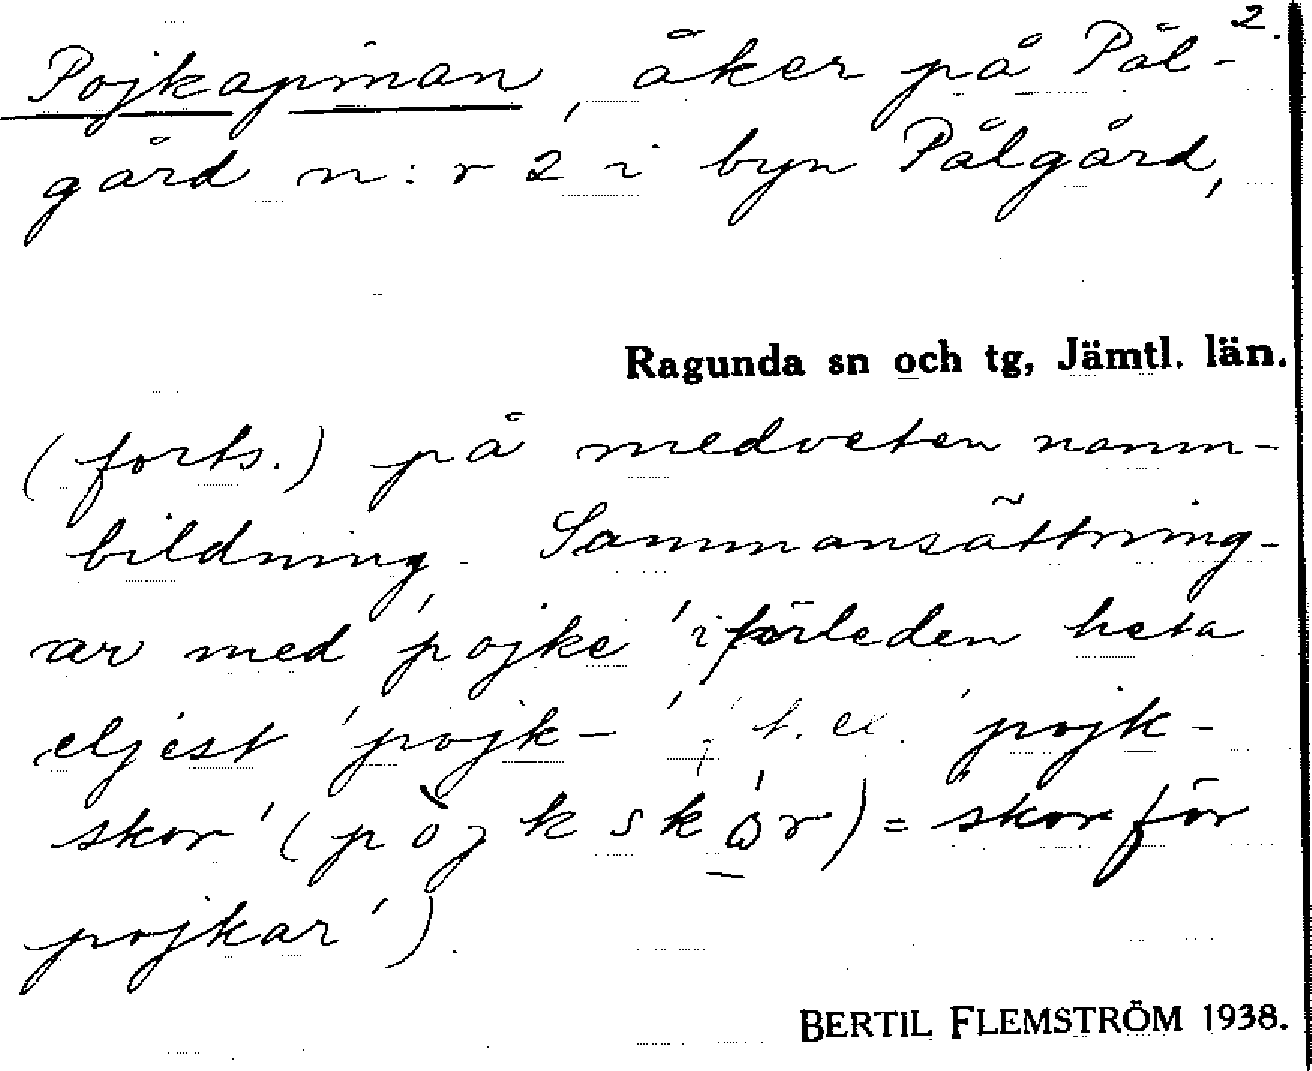 2.
Pojkapinan, åker på Pål-
gård n:r 2 i byn Pålgård,
Ragunda sn och tg, Jämtl. län.
(forts.) på medveten namn-
bildning. Sammansättning-
ar med 'pojke' i förleden heta
eljest 'pojk-', t. ex. 'pojk-
skor' (pòjkskór) = 'skor för
pojkar').
BERTIL FLEMSTRÖM 1938.